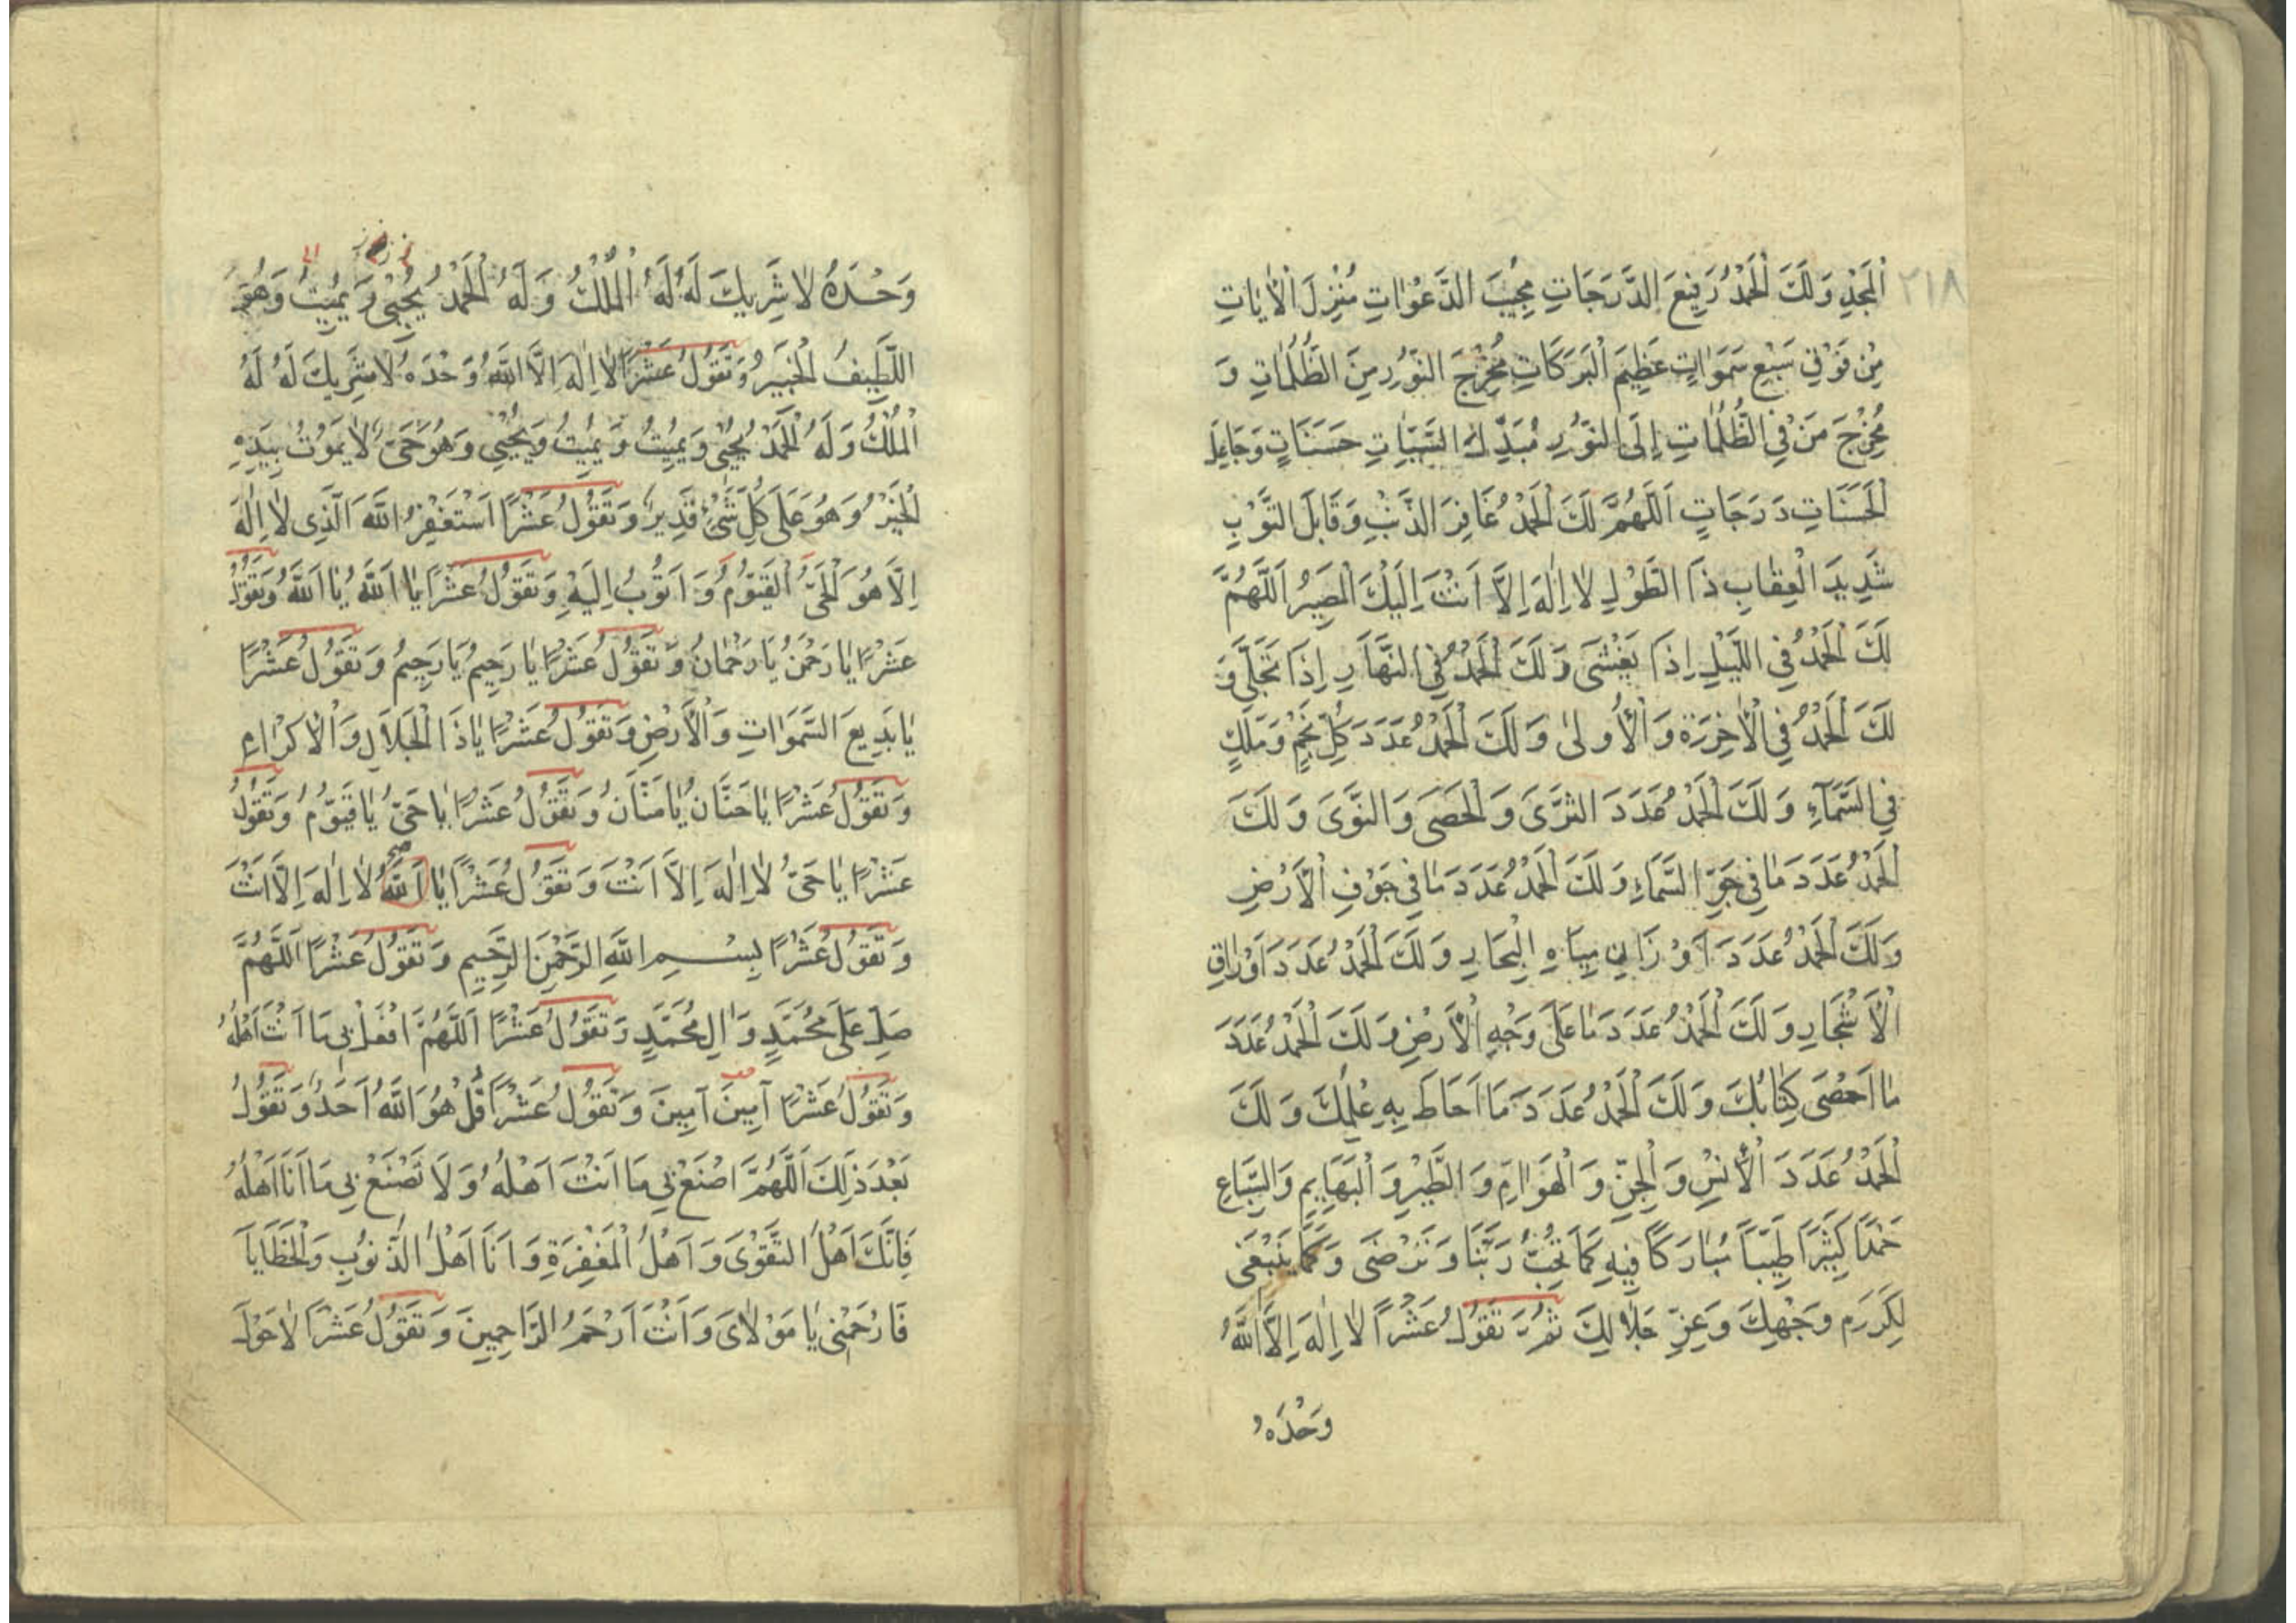 ٢١٨
اَلْمَجْدِ وَلَكَ الْحَمْدُ رَفِيعَ الدَّرَجَاتِ مُجِيبَ الدَّعَوٰاتِ مُنْزِلَ الْاٰيَاتِ
مِنْ فَوْقِ سَبْعِ سَمَوَاتٍ عَظِيمَ الْبَرَكَاتِ مُخْرِجَ النُّورِ مِنَ الظُّلُمٰاتِ وَ
مُخْرِجَ مَنْ فِي الظُّلُمَاتِ إِلَى النُّورِ مُبَدِّلَ السَّيِّئَاتِ حَسَنَاتٍ وَجَاعِلَ
الْحَسَنَاتِ دَرَجَاتٍ اَللّٰهُمَّ لَكَ الْحَمْدُ غَافِرَ الذَّنْبِ وَقَابِلَ التَّوْبِ
شَدِيدَ الْعِقٰابِ ذَا الطَّوْلِ لٰا اِلٰهَ اِلَّا اَنْتَ اِلَيْكَ الْمَصِيرُ اَللّٰهُمَّ
لَكَ الْحَمْدُ فِي اللَّيْلِ اِذَا يَغْشَى وَلَكَ الْحَمْدُ فِي النَّهَارِ اِذَا تَجَلّٰى وَ
لَكَ الْحَمْدُ فِي الْاٰخِرَةِ وَالْأُولىٰ وَلَكَ الْحَمْدُ عَدَدَ كُلِّ نَجْمٍ وَمَلَكٍ
فِي السَّمَآءِ وَلَكَ الْحَمْدُ عَدَدَ الثَّرَى وَالْحَصَى وَالنَّوَى وَلَكَ
الْحَمْدُ عَدَدَ مَا فِي جَوِّ السَّمَاءِ وَلَكَ الْحَمْدُ عَدَدَ مَا فِي جَوْفِ الْاَرْضِ
وَلَكَ الْحَمْدُ عَدَدَ اَوْزَانِ مِيَاهِ الْبِحَارِ وَلَكَ الْحَمْدُ عَدَدَ اَوْرٰاقِ
الْأَشْجَارِ وَلَكَ الْحَمْدُ عَدَدَ مَا عَلَى وَجْهِ الْأَرْضِ وَلَكَ الْحَمْدُ عَدَدَ
مٰا اَحْصَى كِتٰابُكَ وَلَكَ الْحَمْدُ عَدَدَ مَا اَحَاطَ بِهِ عِلْمُكَ وَلَكَ
الْحَمْدُ عَدَدَ الْأِنْسِ وَالْجِنِّ وَالْهَوَامِّ وَالطَّيْرِ وَالْبَهَايِمِ وَالسِّبَاعِ
حَمْدًا كَثِيرًا طَيِّبًا مُبٰارَكًا فِيهِ كَمَا تُحِبُّ رَبَّنَا وَتَرْضَى وَكَمَا يَنْبَغِى
لِكَرَمِ وَجْهِكَ وَعِزِّ جَلٰالِكَ ثُمَّ تَقُولُ عَشْرًا لٰا اِلٰهَ اِلَّا اللّٰهُ
وَحْدَهُ
وَحْدَهُ لٰا شَرِيكَ لَهُ لَهُ الْمُلْكُ وَلَهُ الْحَمْدُ يُحْيِى وَيُمِيتُ وَهُوَ
اللَّطِيفُ الْخَبِيرُ وَتَقُولُ عَشْرًا لٰا اِلٰهَ اِلَّا اللّٰهُ وَحْدَهُ لٰا شَرِيكَ لَهُ لَهُ
الْمُلْكُ وَلَهُ الْحَمْدُ يُحْيِى وَيُمِيتُ وَيُمِيتُ وَيُحْيِي وَهُوَ حَىٌّ لٰا يَمُوتُ بِيَدِهِ
الْخَيْرُ وَهُوَ عَلَى كُلِّ شَىْءٍ قَدِيرٌ وَتَقُولُ عَشْرًا اَسْتَغْفِرُ اللّٰهَ الَّذِى لٰا اِلٰهَ
اِلَّا هُوَ الْحَىُّ الْقَيُّومُ وَاَتُوبُ اِلَيْهِ وَتَقُولُ عَشْرًا يٰا اَللّٰهُ يٰا اَللّٰهُ وَتَقُولُ
عَشْرًا يٰا رَحْمٰنُ يَا رَحْمٰانُ وَتَقُولُ عَشْرًا يٰا رَحِيمُ يَا رَحِيمُ وَتَقُولُ عَشْرًا
يٰا بَدِيعَ السَّمَوٰاتِ وَالْأَرْضِ وَتَقُولُ عَشْرًا يٰا ذَا الْجَلَالِ وَالْاِكْرٰامِ
وَتَقُولُ عَشْرًا يٰا حَنَّانُ يٰا مَنَّانُ وَتَقُولُ عَشْرًا يٰا حَىُّ يٰا قَيُّومُ وَتَقُولُ
عَشْرًا يٰا حَىُّ لٰا اِلٰهَ اِلَّا اَنْتَ وَتَقُولُ عَشْرًا يٰا اَللّٰهُ لٰا اِلٰهَ اِلَّا اَنْتَ
وَتَقُولُ عَشْرًا بِسْمِ اللّٰهِ الرَّحْمٰنِ الرَّحِيمِ وَتَقُولُ عَشْرًا اَللّٰهُمَّ
صَلِّ عَلَى مُحَمَّدٍ وَاٰلِ مُحَمَّدٍ وَتَقُولُ عَشْرًا اَللّٰهُمَّ افْعَلْ بِى مَا اَنْتَ اَهْلُهُ
وَتَقُولُ عَشْرًا آمِينَ آمِينَ وَتَقُولُ عَشْرًا قُلْ هُوَ اللّٰهُ اَحَدٌ وَتَقُولُ
بَعْدَ ذٰلِكَ اَللّٰهُمَّ اصْنَعْ بِى مَا اَنْتَ اَهْلُهُ وَلَا تَصْنَعْ بِى مَا اَنَا اَهْلُهُ
فَاِنَّكَ اَهْلُ التَّقْوَى وَاَهْلُ الْمَغْفِرَةِ وَاَنَا اَهْلُ الذُّنُوبِ وَالْخَطَايَا
فَارْحَمْنِى يٰا مَوْلٰاىَ وَاَنْتَ اَرْحَمُ الرَّاحِمِينَ وَتَقُولُ عَشْرًا لٰا حَوْلَ